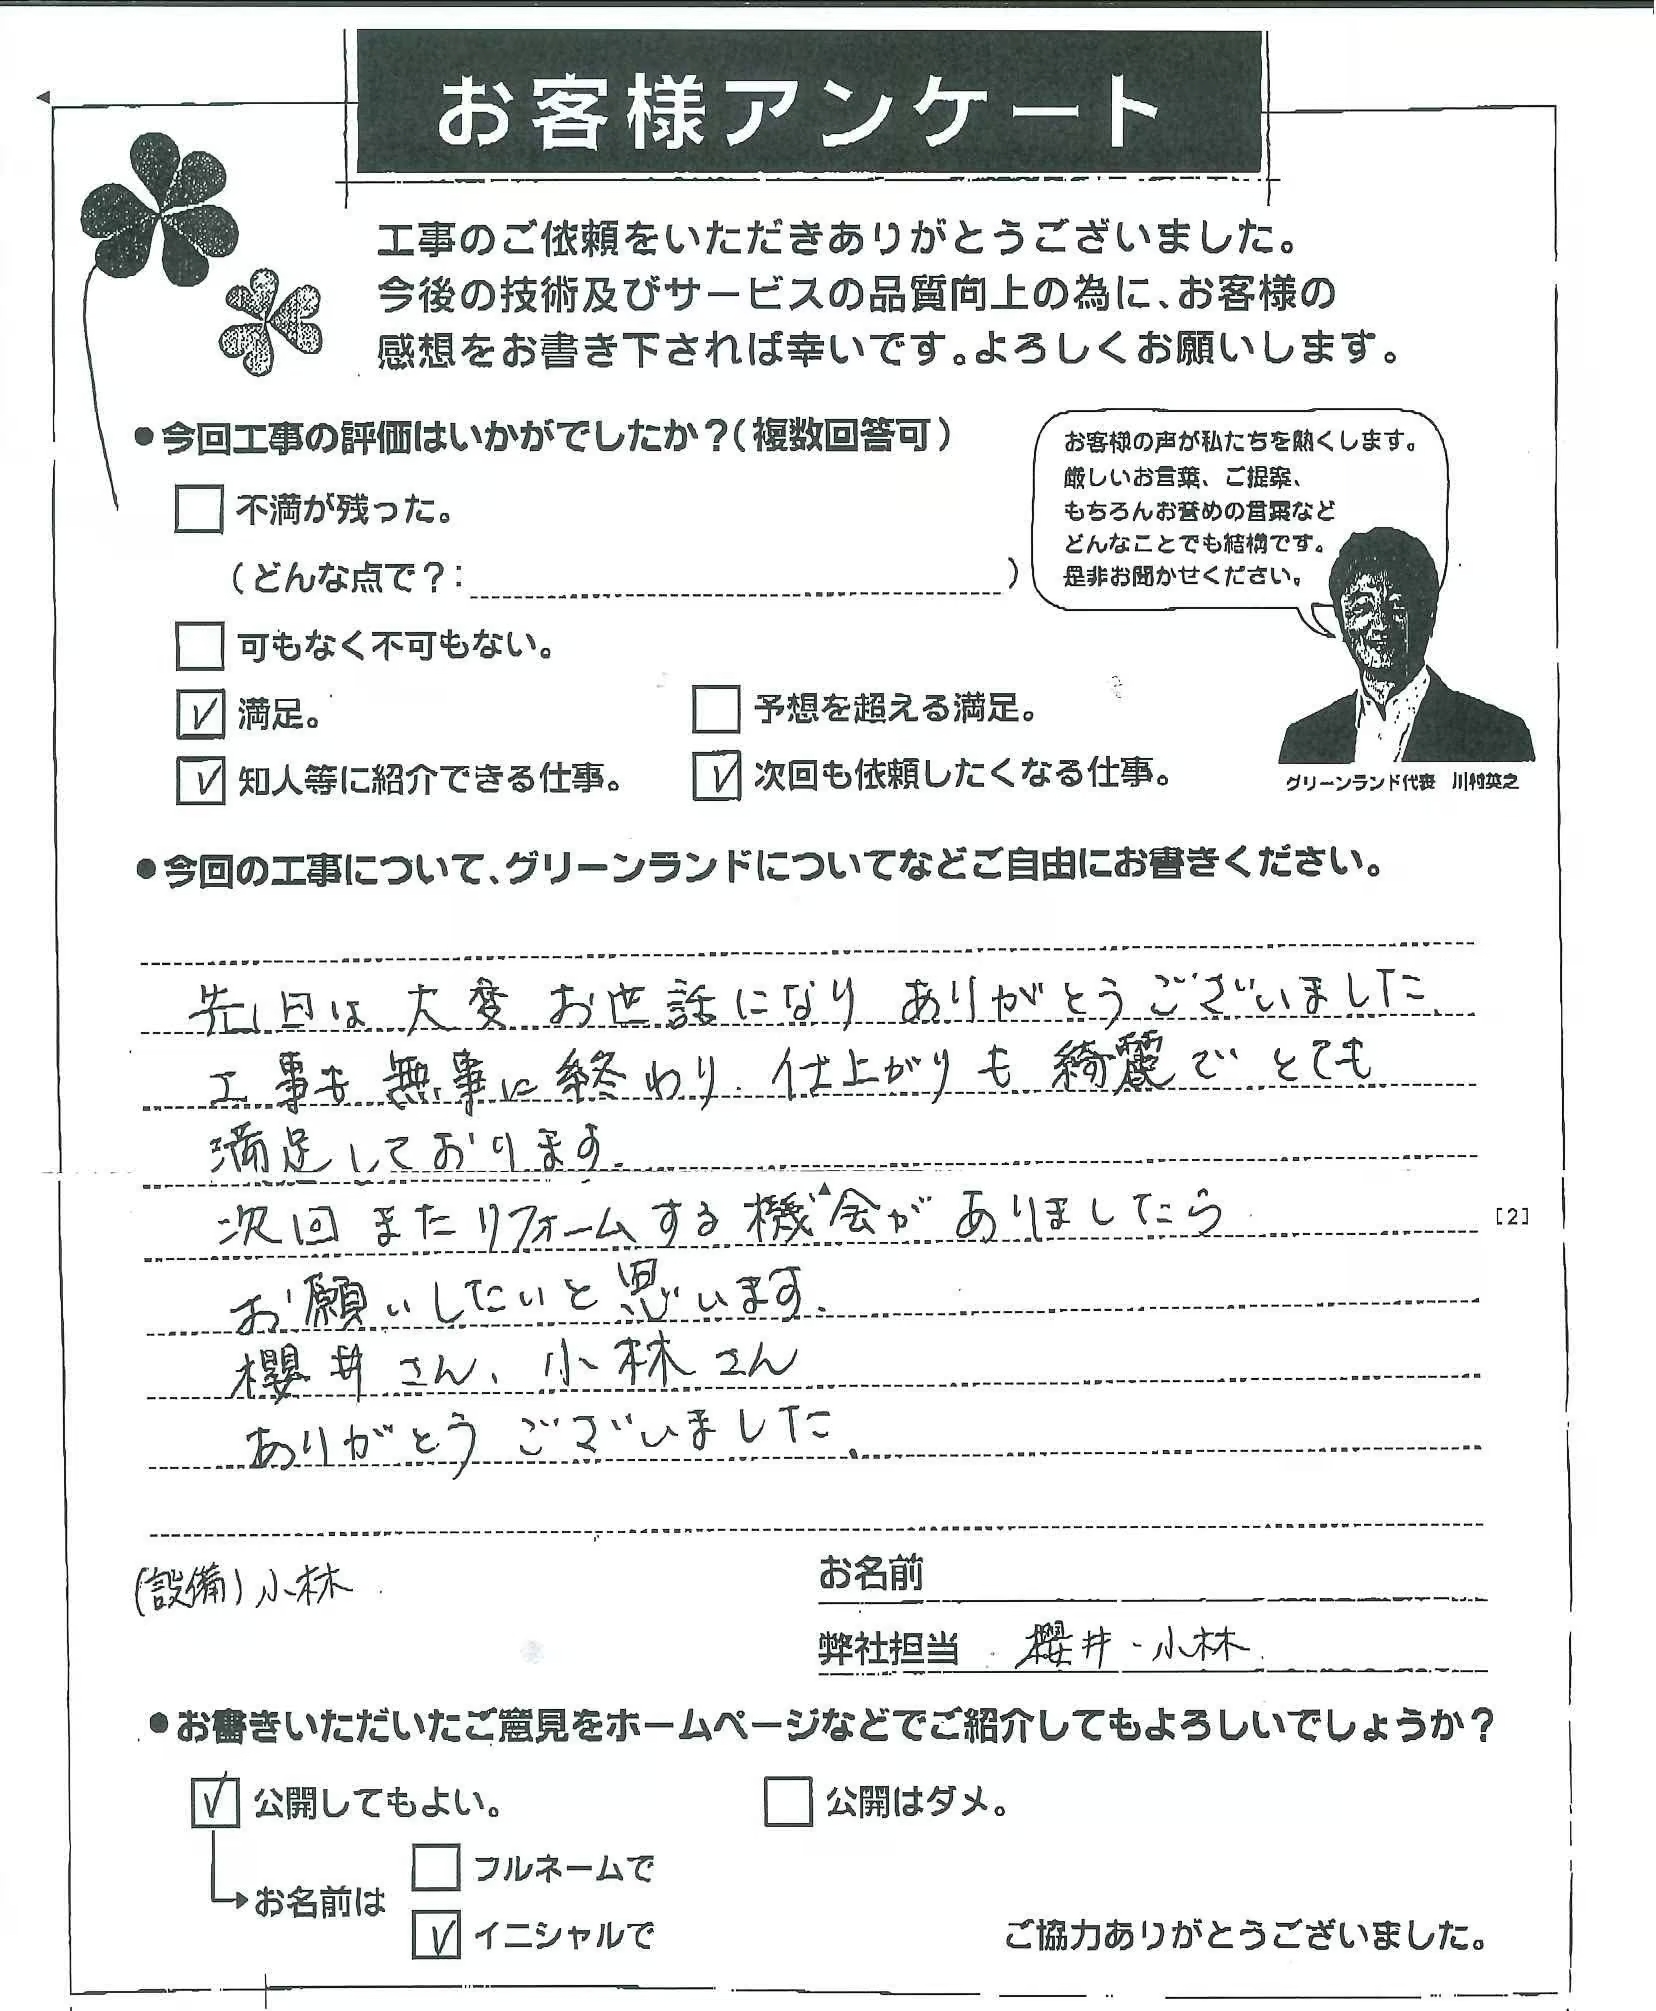 お客様アンケート
工事のご依頼をいただきありがとうございました。
今後の技術及びサービスの品質向上の為に、お客様の
感想をお書き下されば幸いです。よろしくお願いします。
●今回工事の評価はいかがでしたか?(複数回答可)
不満が残った。
(どんな点で?: )
可もなく不可もない。
✓ 満足。
予想を超える満足。
✓ 知人等に紹介できる仕事。
✓ 次回も依頼したくなる仕事。
お客様の声が私たちを熱くします。
厳しいお言葉、ご提案、
もちろんお誉めの言葉など
どんなことでも結構です。
是非お聞かせください。
グリーンランド代表 川村英之
●今回の工事について、グリーンランドについてなどご自由にお書きください。
先日は 大変 お世話になり ありがとうございました、
工事も 無事に 終わり、仕上がりも 綺麗で とても
満足しております、
次回 またリフォームする機会が ありましたら
[2]
お願いしたいと思います、
櫻井さん、小林さん
ありがとう ございました、
(設備)小林
お名前
弊社担当 櫻井・小林
●お書きいただいたご意見をホームページなどでご紹介してもよろしいでしょうか?
✓ 公開してもよい。
公開はダメ。
お名前は
フルネームで
✓ イニシャルで
ご協力ありがとうございました。